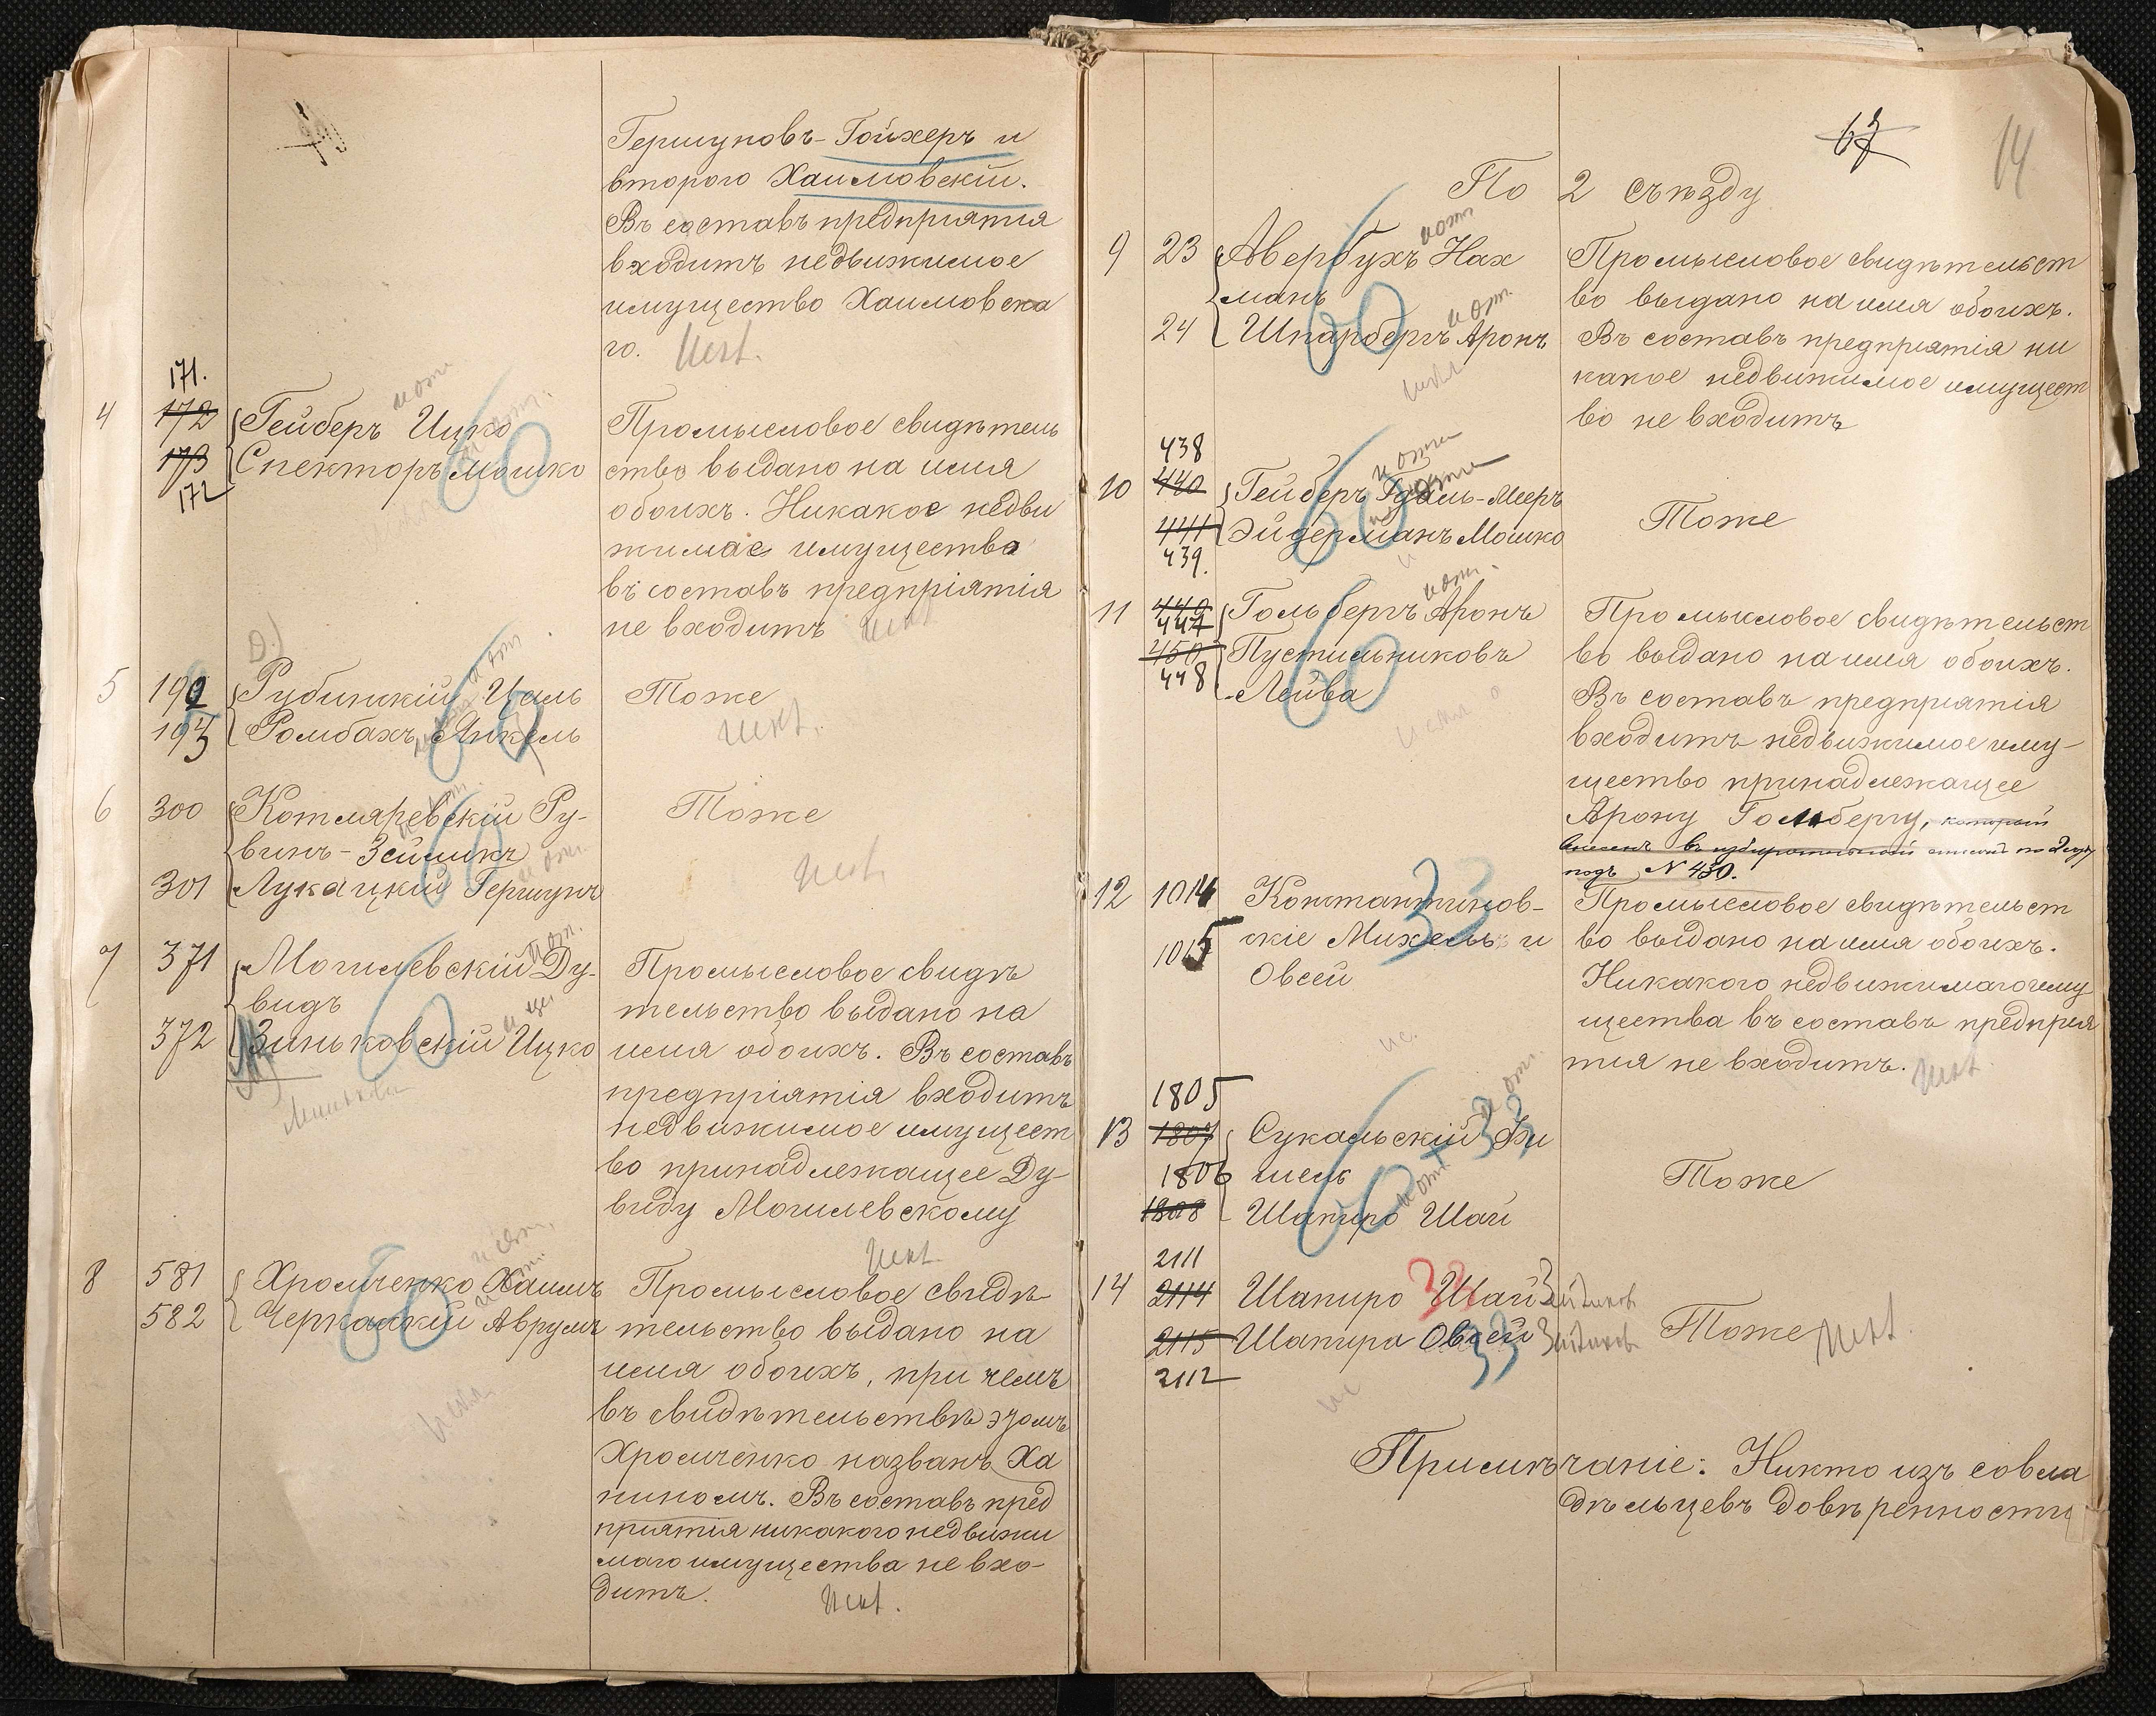 Гершуновъ-Гойхеръ и
второго Хаимовскій.
Въ составъ предпріятія
входитъ недвижимое
имущество Хаимовска
го.
171.
4 172 Гейберъ Ицко
173 Спекторъ Мошко
172
Промысловое свидѣтель
ство выдано на имя
обоихъ. Никакое недви
жимое имущество
въ составъ предпріятія
не входитъ
5 192 Рубинскій Цаль Тоже
193 Ромбахъ Янкель
6 300 Котляревскій Ру- Тоже
винъ-Зейликъ
301 Лукацкій Гершунъ
7 371 Могилевскій Ду-
видъ
372 Зиньковскій Ицко
Промысловое свидѣ
тельство выдано на
имя обоихъ. Въ составъ
предпріятія входитъ
недвижимое имущест
во принадлежащее Ду-
виду Могилевскому
8 581 Хромченко Хаимъ
582 Черкаскій Аврумъ
Промысловое свидѣ
тельство выдано на
имя обоихъ, при чемъ
въ свидѣтельствѣ этомъ
Хромченко названъ Ха
ниномъ. Въ составъ пред
пріятія никакого недвижи
маго имущества не вхо-
дитъ.
67
14
По 2 съѣзду
9 23 Авербухъ Нах
манъ
24 Шпарбергъ Аронъ
Промысловое свидѣтельст
во выдано на имя обоихъ.
Въ составъ предпріятія ни
какое недвижимое имущест
во не входитъ
438
10 440 Гейберъ Гдаль-Мееръ
441 Эйдерманъ Мошко
439.
Тоже
11 449 Гольбергъ Аронъ
447
450 Пустильниковъ
448 Лейва
Промысловое свидѣтельст
во выдано на имя обоихъ.
Въ составъ предпріятія
входитъ недвижимое иму-
щество принадлежащее
Арону Гольбергу, который
внесенъ въ избирательный списокъ по 2 съѣзду
подъ N 450.
12 1014 Константинов-
1015 скіе Михель и
Овсей
Промысловое свидѣтельст
во выдано на имя обоихъ.
Никакого недвижимаго иму
щества въ составъ предпрія
тія не входитъ.
1805
13 1807 Сукальскій Фи
1806 шель
1808 Шапиро Шай
Тоже
2111
14 2114 Шапиро Шай Зейликовъ
2115 Шапиро Овсей Зейликовъ
2112
Тоже
Примѣчаніе: Никто изъ совла
дѣльцевъ довѣренности